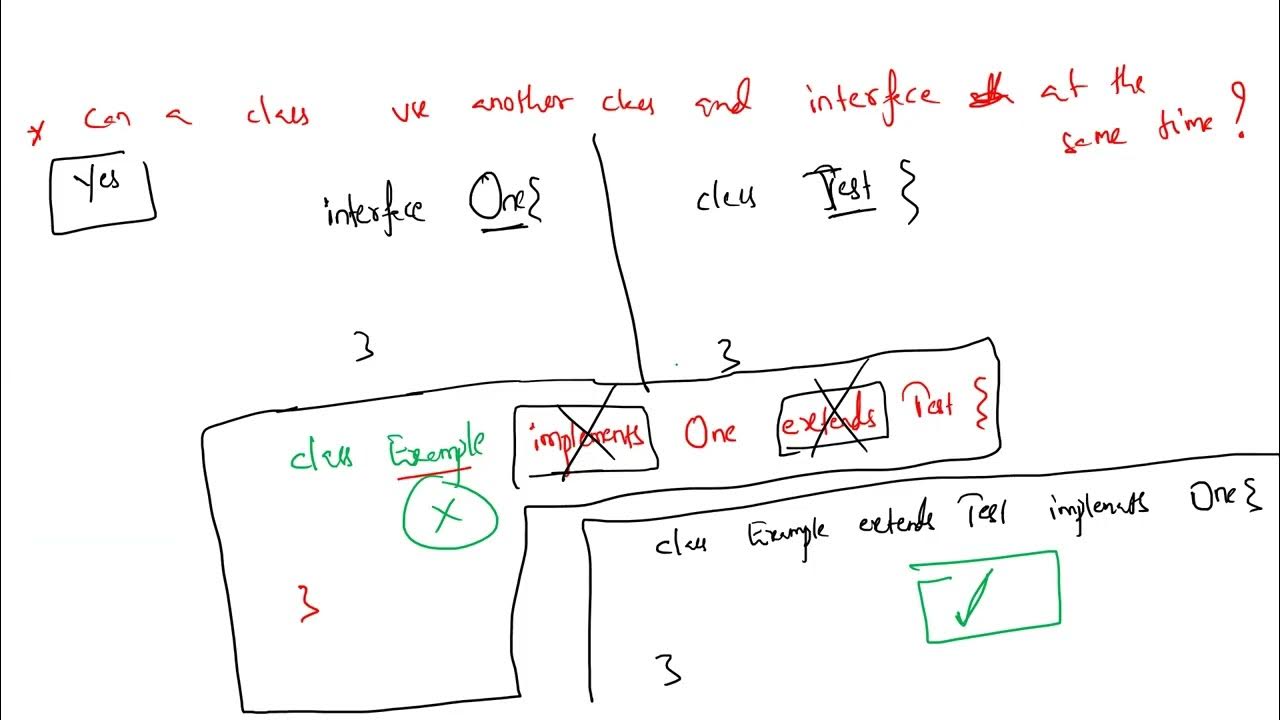 * Can a class use another class and interface at the
same time?
Yes
interface One{
class Test {
}
}
class Example implements One extends Test {
X
}
class Example extends Test implements One{
✓
}